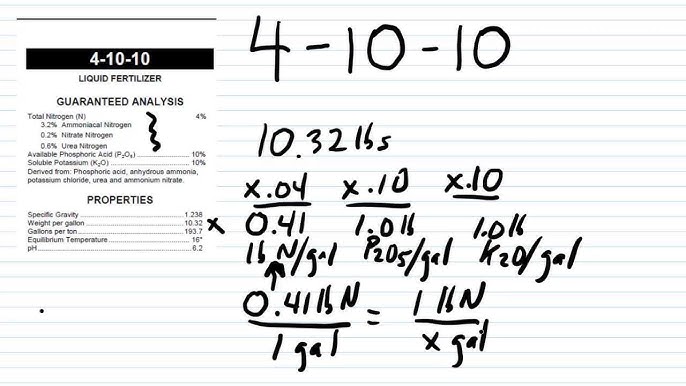 4-10-10
LIQUID FERTILIZER
GUARANTEED ANALYSIS
Total Nitrogen (N) 4%
3.2% Ammoniacal Nitrogen
0.2% Nitrate Nitrogen
0.6% Urea Nitrogen
Available Phosphoric Acid (P₂O₅) 10%
Soluble Potassium (K₂O) 10%
Derived from: Phosphoric acid, anhydrous ammonia,
potassium chloride, urea and ammonium nitrate.
PROPERTIES
Specific Gravity 1.238
Weight per gallon 10.32
Gallons per ton 193.7
Equilibrium Temperature 16°
pH 6.2
4-10-10
10.32 lbs
x.04 x.10 x.10
x 0.41 1.0 lb 1.0 lb
lb N/gal P2O5/gal K2O/gal
0.41 lb N = 1 lb N
1 gal x gal